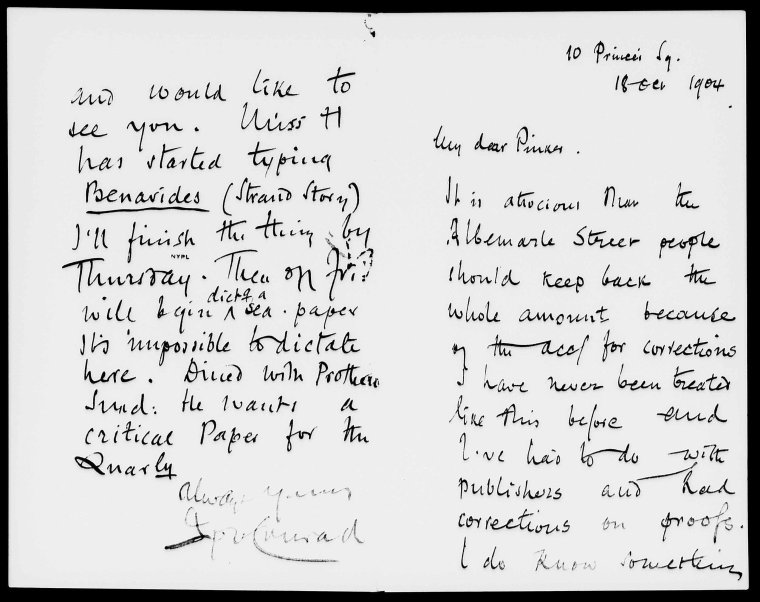 10 Princes Sq.
18 Oct 1904.
My dear Pinker.
It is atrocious that the
Albemarle Street people
should keep back the
whole amount because
of the acct for corrections
I have never been treated
like this before and
I've had to do with
publishers and had
corrections on proofs.
I do know something
and would like to
see you. Miss H
has started typing
Benavides (Strand Story)
I'll finish the thing by
NYPL
Thursday. Then on Fri:
will begin dictg a sea-paper
It's impossible to dictate
here. Dined with Prothero
Sund: He wants a
critical Paper for the
Quarly
Always yours
Jph Conrad